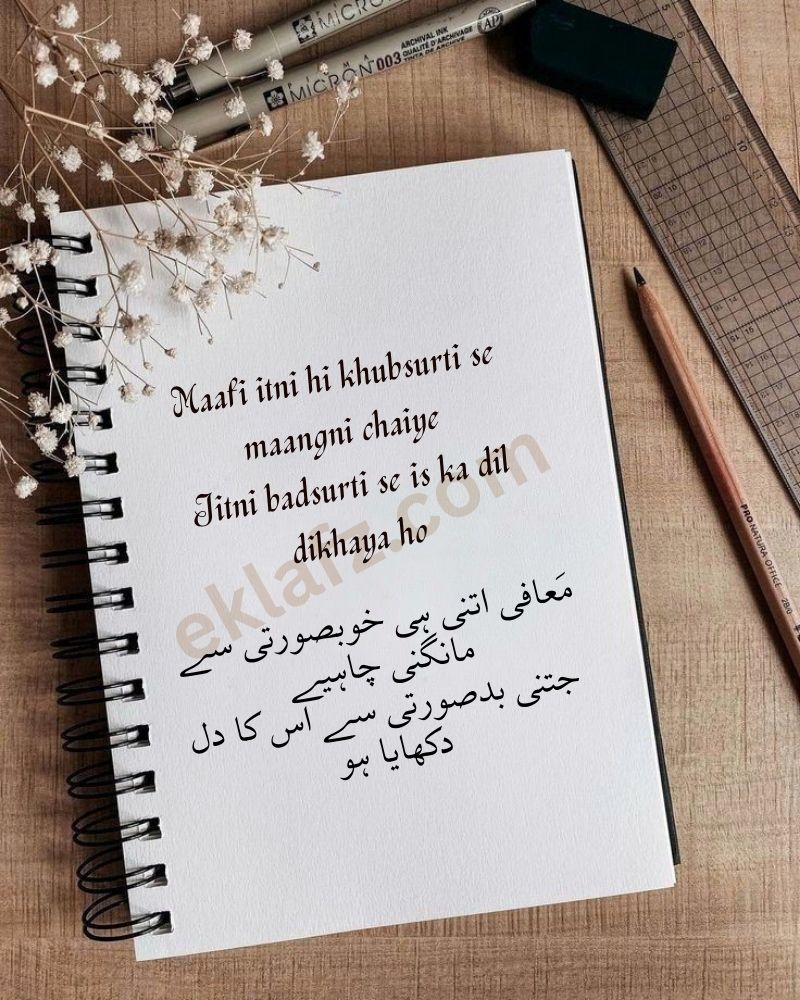 MICRON
MICRON 003 ARCHIVAL INK
QUALITÉ D'ARCHIVAGE
TINTA DE ARCHIVE
AP
Maafi itni hi khubsurti se
maangni chaiye
Jitni badsurti se is ka dil
dikhaya ho
eklafz.com
مَعافی اتنی ہی خوبصورتی سے
مانگنی چاہیے
جتنی بدصورتی سے اس کا دل
دکھایا ہو
PRO NATURA OFFICE